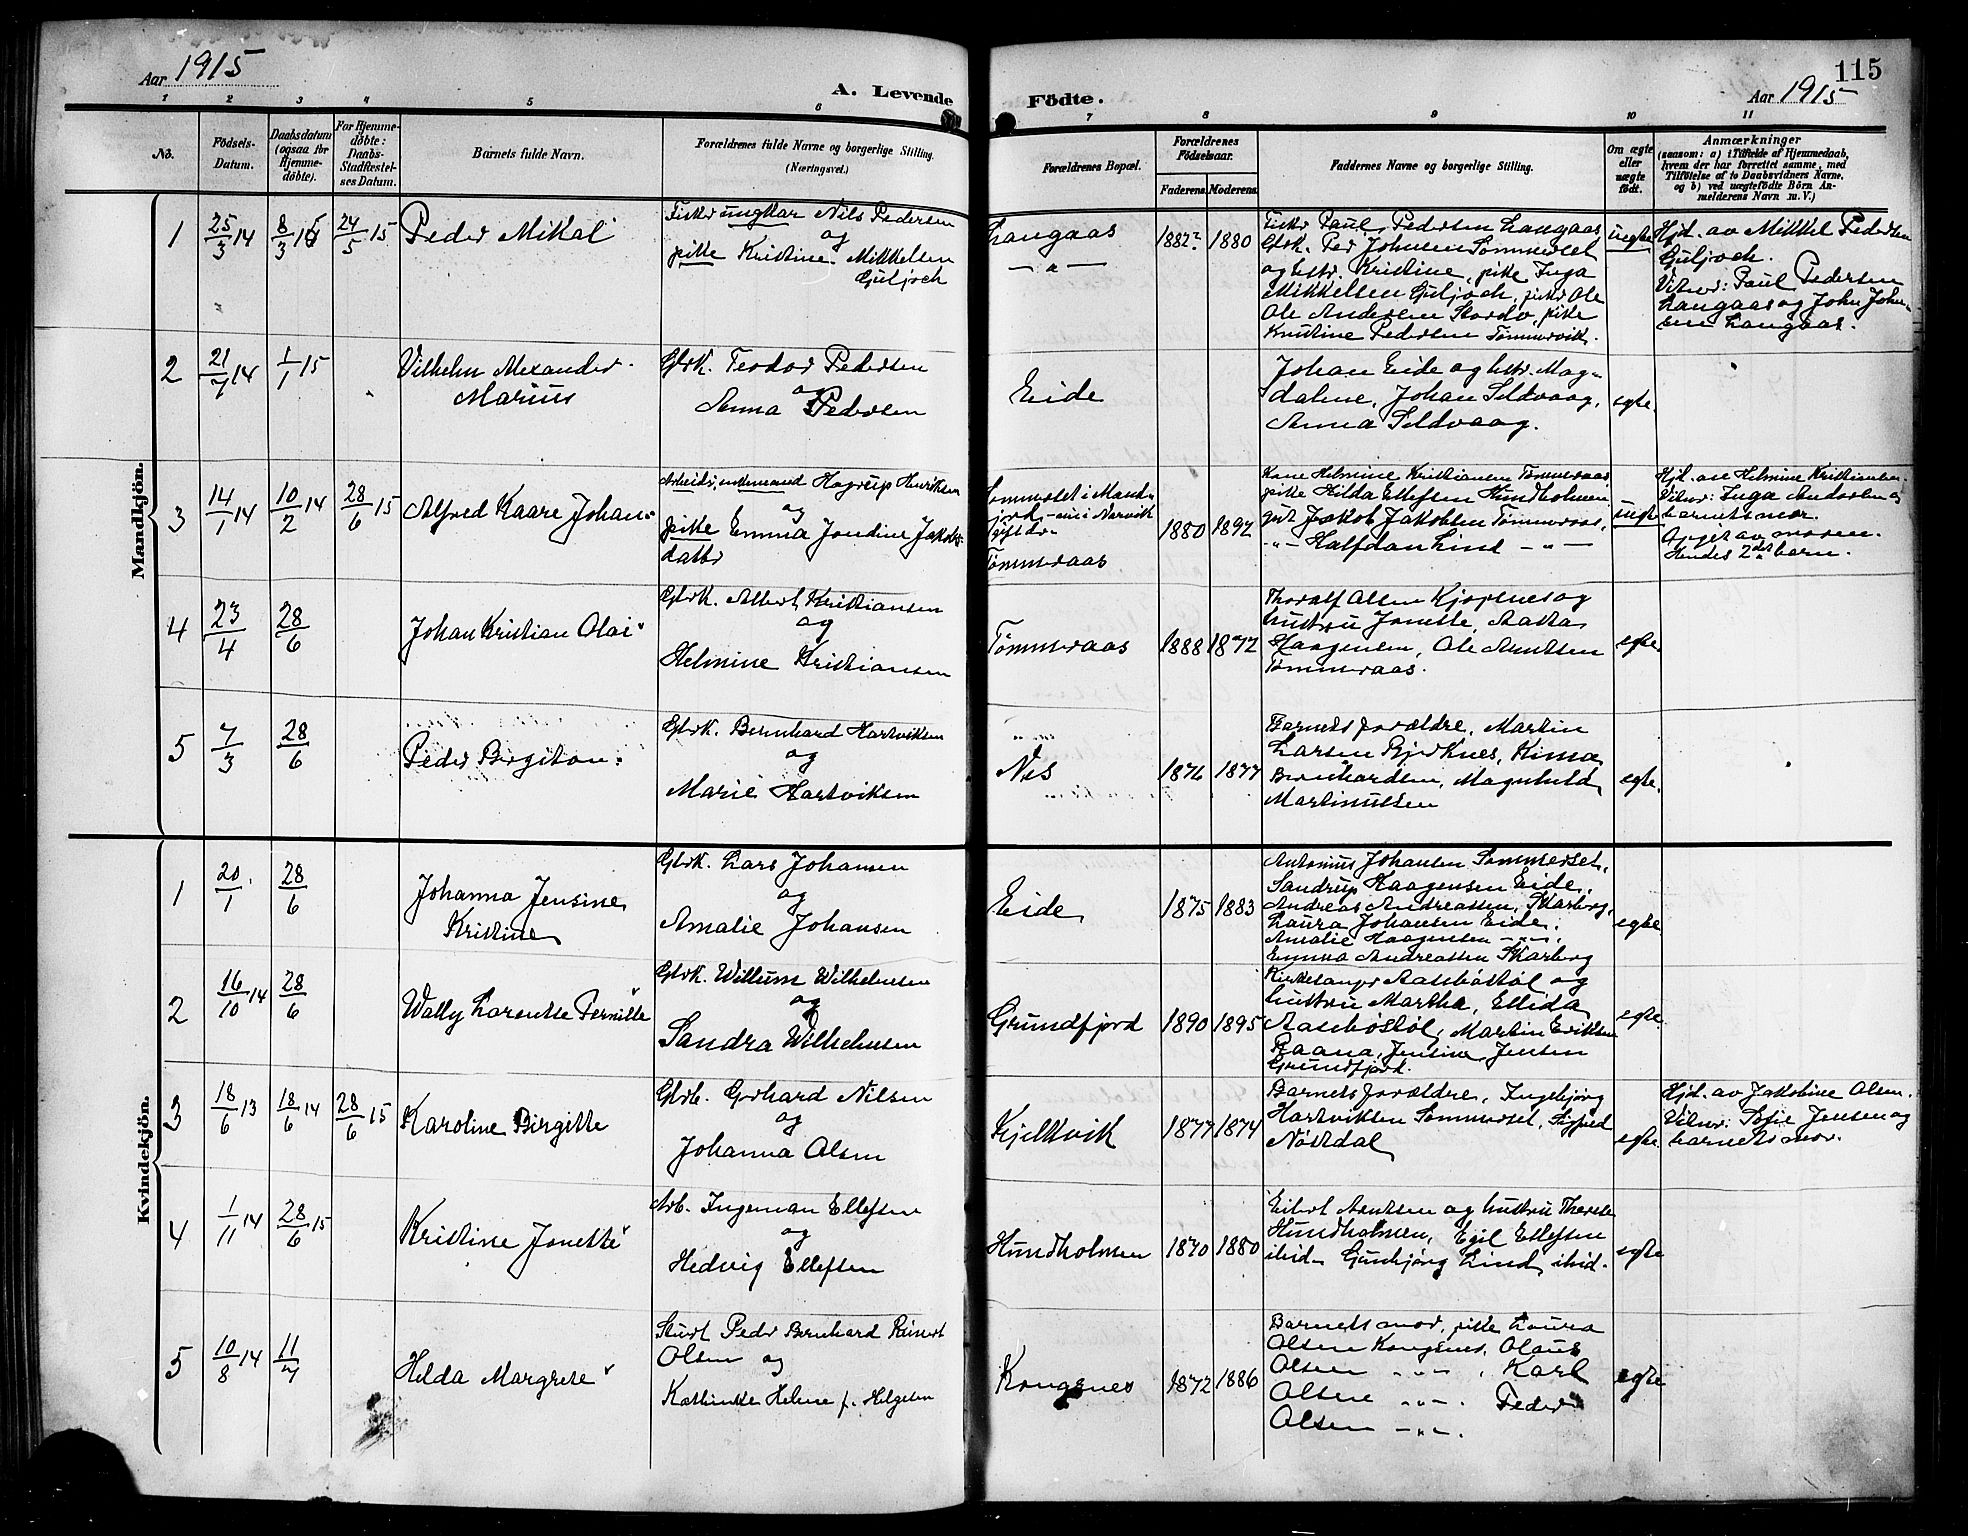 Aar 1915
A. Levende
Födte.
115
Aar 1915
1 2 3 4 5 6 7 8 9 10 11
No.
Födsels-
Datum.
Daabsdatum
(ogsaa for
Hjemme-
döbte).
For Hjemme-
döbte:
Daabs-
Stadfæstel-
ses Datum.
Barnets fulde Navn.
Forældrenes fulde Navne og borgerlige Stilling.
(Næringsvei.)
Forældrenes Bopæl.
Forældrenes
Födselsaar.
Faderens. Moderens.
Faddernes Navne og borgerlige Stilling.
Om ægte
eller
uægte
födt.
Anmærkninger
(saasom: a) i Tilfælde af Hjemmedaab,
hvem der har forrettet samme, med
Tilföielse af to Daabsvidners Navne,
og b) ved uægtefödte Börn An-
melderens Navn m. V.)
Mandkjön.
1
25/3 14
8/3 14
24/5 15
Peder Mikal
Fisker ungkar Nils Pedersen
og
pike Kristine Mikkelsen
Guljoch
Langaas
— " —
1882 1880
Fisker Paul Pedersen Langaas
Gbrk. Per Johnsen Sommerset
og hstr. Kristine, pike Inga
Mikkelsen Guljoch, fisker Ole
Ole Andersen Stordv, pike
Kristine Pedersen Tømmervik.
uegte
Hjd. av Mikkel Pedersen
Guljoch.
Vitner: Paul Pedersen
Langaas og John John-
sen Langaas.
2
21/7 14
1/1 15
Vilhelm Alexander
Marius
Gbrk. Teodor Pedersen
og
Anna Pedersen
Eide
Johan Eide og hstr. Mag-
dalene, Johan Sildvaag,
Anna Sildvaag.
egte.
3
14/1 14
10/2 14
28/6 15
Alfred Kaare Johan
Arbeider, enkemand Hagrup Henriksen
og
pike Emma Jondine Jakobs-
datter
Sommerset i Mand-
fjord - nu i Narvik
Tømmeraas
1880 1892
Kone Helmine Kristiansen Tømmeraas
pike Hilda Ellefsen Hundholmen
gut Jakob Jakobsen Tømmeraas,
-"- Halfdan Lind -"-
uegte
Hjd. av Helmine Kristiansen.
Vitner: Inga Andersen og
barnets mor.
Opgit av moren.
Hendes 2det barn.
4
23/4
28/6
Johan Kristian Olai
Gbrk. Albert Kristiansen
og
Helmine Kristiansen
Tømmeraas
1888 1872
Thoralf Olsen Kjøpsnes og
hustru Jonette, Aasta
Haagensen, Ole Arntsen
Tømmeraas.
egte.
5
7/3
28/6
Peder Birgiton.
Gbrk. Bernhard Hartviksen
og
Marie Hartviksen
Nes
1876 1877
Barnets forældre, Martin
Larsen Bjerknes, Kima
Bernhardsen, Magnhild
Martinussen
egte.
Kvindekjön.
1
20/1
28/6
Johanna Jensine
Kristine
Gbrk. Lars Johansen
og
Amalie Johansen
Eide
1875 1883
Antonius Johansen Sommerset,
Sandrup Haagensen Eide,
Andreas Andreassen, Skarberg,
Laura Johansen Eide,
Amalie Haagensen -"-,
Emma Andreassen Skarberg
egte
2
16/10 14
28/6
Wally Larentse Pernille
Gbrk. Willum Wilhelmsen
og
Sandra Wilhelmsen
Grundfjord
1890 1895
Kirkesanger Aasebøstøl og
hustru Martha, Ellida
Aasebøstøl, Martin Eriksen
Raana, Jensine Jensen
Grundfjord.
egte.
3
18/6 13
18/6 14
28/6 15
Karoline Birgitte
Gbrb. Gerhard Nilsen
og
Johanna Olsen
Kjelkvik
1877 1874
Barnets forældre, Ingebjørg
Hartviksen Sommerset, Sigfred
Nøstdal
egte.
Hjd. av Jakobine Olsen.
Vitner: Sofie Jensen og
barnets mor.
4
1/11 14
28/6 15
Kristine Jonette
Arb. Ingeman Ellefsen
og
Hedvig Ellefsen
Hundholmen
1870 1880
Eilert Arntsen og hustru Therese
Hundholmen, Egil Ellefsen
ibid- Gunbjørg Lind, ibid.
egte
5
10/8 14
11/7
Hilda Margrete
Peder Bernhard Reinert
Olsen og
Kathinka Helene f. Helgesen
Kongsnes
1872 1886
Barnets mor, pike Laura
Olsen Kongsnes, Olaus
Olsen -"-, Karl
Olsen -"-. Peder
Olsen -"-.
egte